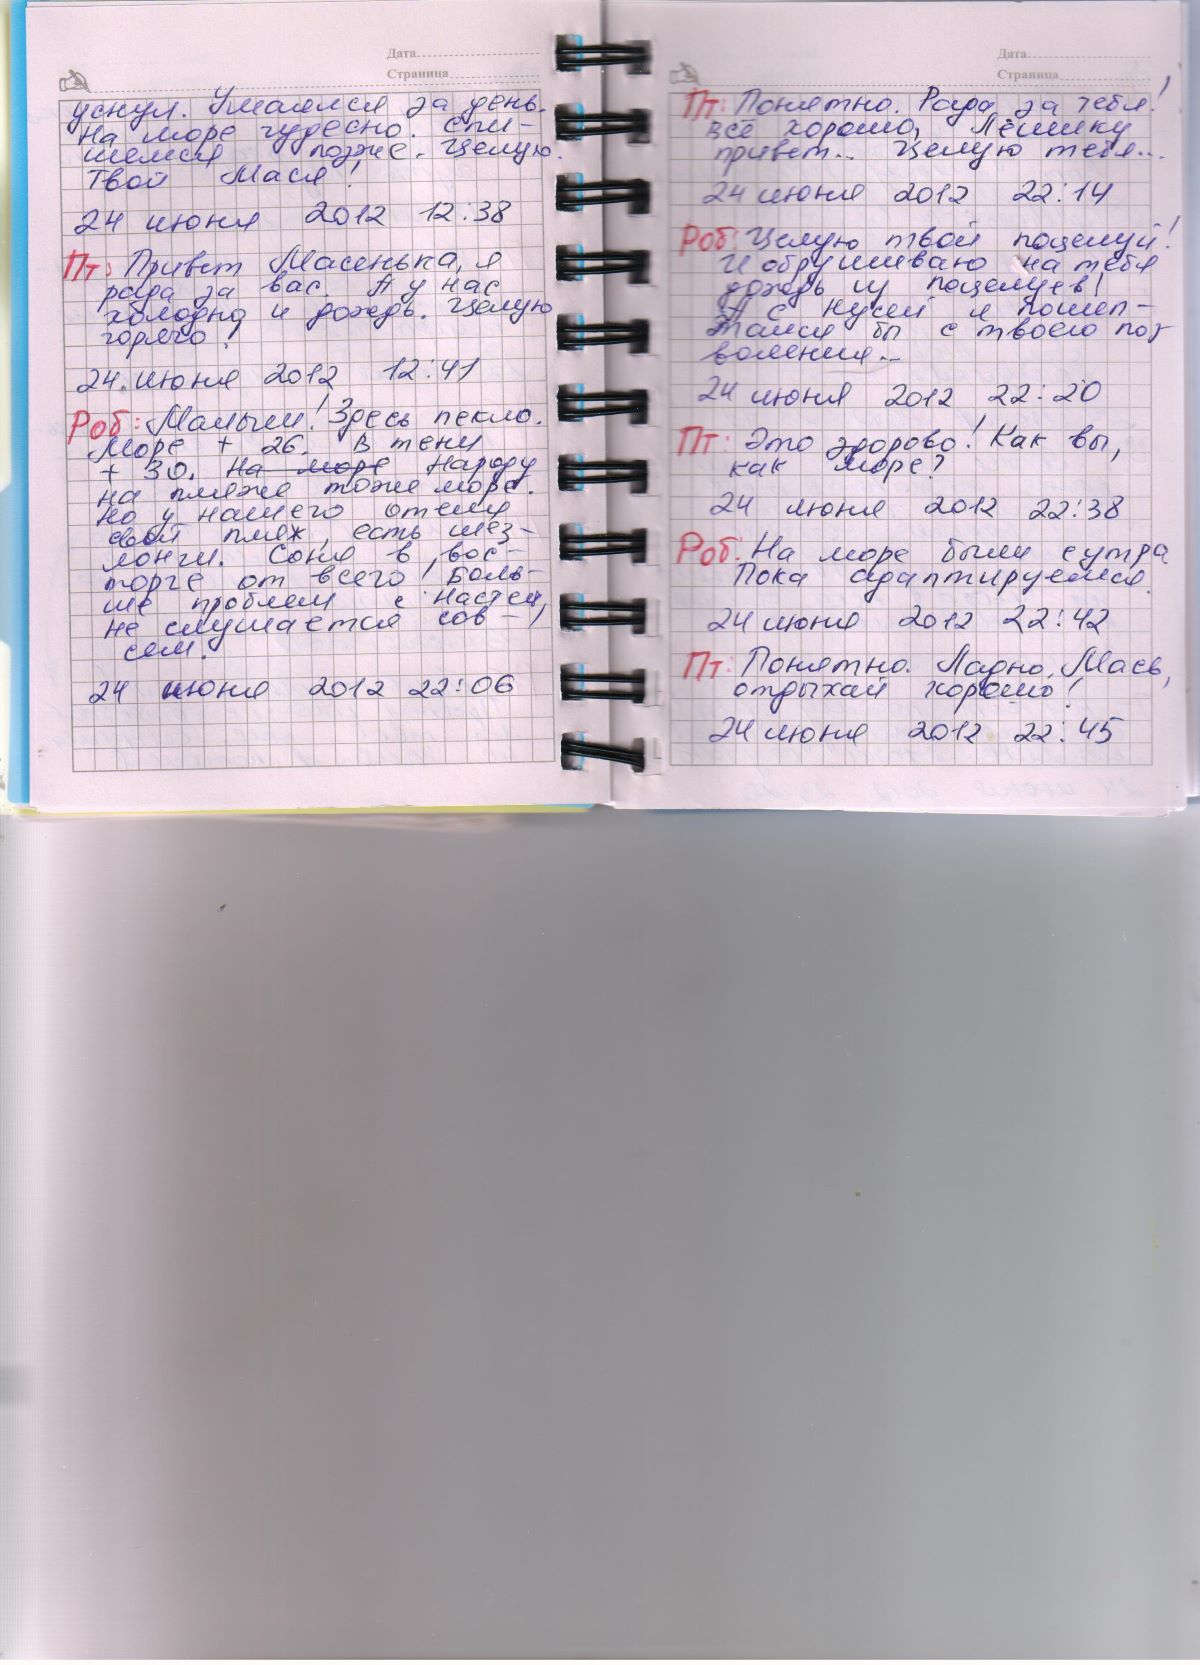 Дата
Страница
уснул. Умаялся за день.
На море чудесно. Спи-
шемся позже. Целую.
Твой Мася!
24 июня 2012 12:38
Пт: Привет Масенька, я
рада за вас. А у нас
холодно и дождь. Целую
горячо!
24. июня 2012 12:41
Роб: Малыш! Здесь пекло.
Море + 26. В тени
+ 30. На море Народу
на пляже тоже море.
но у нашего отеля
свой пляж, есть шез-
лонги. Соня в вос-
торге от всего! Боль-
ше проблем с Настей,
не слушается сов-
сем.
24 июня 2012 22:06
Дата
Страница
Пт: Понятно. Рада за тебя!
Всё хорошо, Лёшику
привет... Целую тебя...
24 июня 2012 22:14
Роб: Целую твой поцелуй!
И обрушиваю на тебя
дождь из поцелуев!
А с Кусей я пошеп-
тался бы с твоего поз
воления...
24 июня 2012 22:20
Пт: Это здорово! Как вы,
как море?
24 июня 2012 22:38
Роб: На море были с утра
Пока адаптируемся.
24 июня 2012 22:42
Пт: Понятно. Ладно, Мась,
отдыхай хорошо!
24 июня 2012 22:45